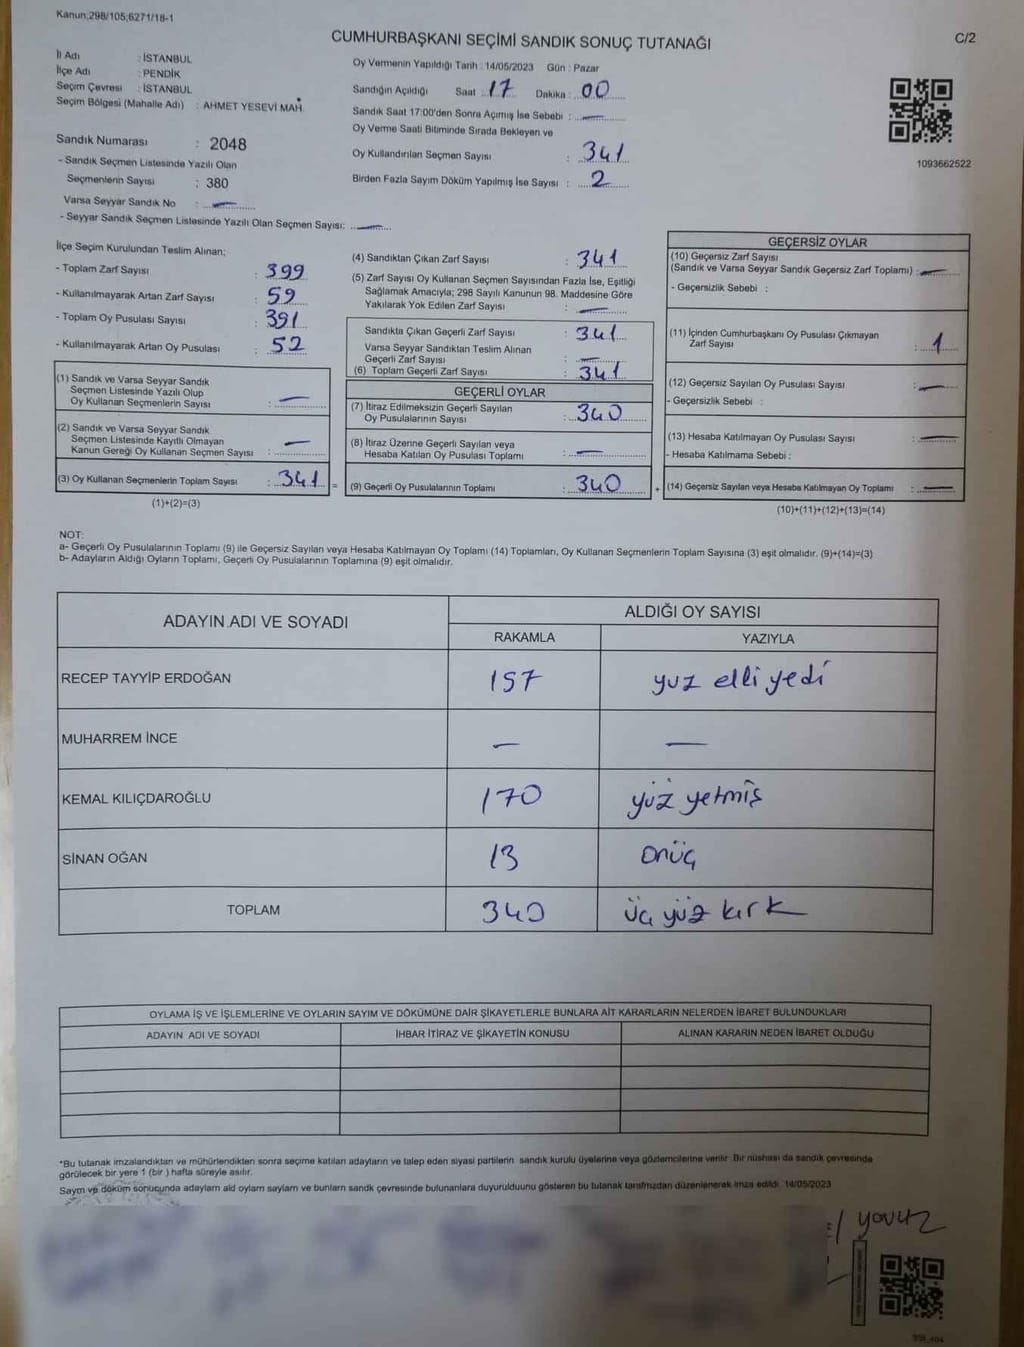 Kanun;298/105;6271/18-1
CUMHURBAŞKANI SEÇİMİ SANDIK SONUÇ TUTANAĞI
C/2
İl Adı : İSTANBUL
İlçe Adı : PENDİK
Seçim Çevresi : İSTANBUL
Seçim Bölgesi (Mahalle Adı) : AHMET YESEVİ MAH.
Sandık Numarası : 2048
- Sandık Seçmen Listesinde Yazılı Olan
Seçmenlerin Sayısı : 380
Varsa Seyyar Sandık No : —
- Seyyar Sandık Seçmen Listesinde Yazılı Olan Seçmen Sayısı: —
Oy Vermenin Yapıldığı Tarih : 14/05/2023 Gün : Pazar
Sandığın Açıldığı Saat : 17 Dakika : 00
Sandık Saat 17:00'den Sonra Açımış İse Sebebi : —
Oy Verme Saati Bitiminde Sırada Bekleyen ve
Oy Kullandırılan Seçmen Sayısı : 341
Birden Fazla Sayım Döküm Yapılmış İse Sayısı : 2
1093662522
İlçe Seçim Kurulundan Teslim Alınan;
- Toplam Zarf Sayısı : 399
- Kullanılmayarak Artan Zarf Sayısı : 59
- Toplam Oy Pusulası Sayısı : 391
- Kullanılmayarak Artan Oy Pusulası : 52
(1) Sandık ve Varsa Seyyar Sandık
Seçmen Listesinde Yazılı Olup
Oy Kullanan Seçmenlerin Sayısı : —
(2) Sandık ve Varsa Seyyar Sandık
Seçmen Listesinde Kayıtlı Olmayan
Kanun Gereği Oy Kullanan Seçmen Sayısı : —
(3) Oy Kullanan Seçmenlerin Toplam Sayısı : 341 =
(1)+(2)=(3)
(4) Sandıktan Çıkan Zarf Sayısı : 341
(5) Zarf Sayısı Oy Kullanan Seçmen Sayısından Fazla İse, Eşitliği
Sağlamak Amacıyla; 298 Sayılı Kanunun 98. Maddesine Göre
Yakılarak Yok Edilen Zarf Sayısı : —
Sandıkta Çıkan Geçerli Zarf Sayısı : 341
Varsa Seyyar Sandıktan Teslim Alınan
Geçerli Zarf Sayısı : —
(6) Toplam Geçerli Zarf Sayısı : 341
GEÇERLİ OYLAR
(7) İtiraz Edilmeksizin Geçerli Sayılan
Oy Pusulalarının Sayısı : 340
(8) İtiraz Üzerine Geçerli Sayılan veya
Hesaba Katılan Oy Pusulası Toplamı : —
(9) Geçerli Oy Pusulalarının Toplamı : 340 +
GEÇERSİZ OYLAR
(10) Geçersiz Zarf Sayısı
(Sandık ve Varsa Seyyar Sandık Geçersiz Zarf Toplamı) : —
- Geçersizlik Sebebi :
(11) İçinden Cumhurbaşkanı Oy Pusulası Çıkmayan
Zarf Sayısı : 1
(12) Geçersiz Sayılan Oy Pusulası Sayısı : —
- Geçersizlik Sebebi :
(13) Hesaba Katılmayan Oy Pusulası Sayısı : —
- Hesaba Katılmama Sebebi :
(14) Geçersiz Sayılan veya Hesaba Katılmayan Oy Toplamı : —
(10)+(11)+(12)+(13)=(14)
NOT:
a- Geçerli Oy Pusulalarının Toplamı (9) ile Geçersiz Sayılan veya Hesaba Katılmayan Oy Toplamı (14) Toplamları, Oy Kullanan Seçmenlerin Toplam Sayısına (3) eşit olmalıdır. (9)+(14)=(3)
b- Adayların Aldığı Oyların Toplamı, Geçerli Oy Pusulalarının Toplamına (9) eşit olmalıdır.
ADAYIN ADI VE SOYADI ALDIĞI OY SAYISI
RAKAMLA YAZIYLA
RECEP TAYYİP ERDOĞAN 157 yuz elli yedi
MUHARREM İNCE — —
KEMAL KILIÇDAROĞLU 170 yüz yetmiş
SİNAN OĞAN 13 onüç
TOPLAM 340 üç yüz kırk
OYLAMA İŞ VE İŞLEMLERİNE VE OYLARIN SAYIM VE DÖKÜMÜNE DAİR ŞİKAYETLERLE BUNLARA AİT KARARLARIN NELERDEN İBARET BULUNDUKLARI
ADAYIN ADI VE SOYADI İHBAR İTİRAZ VE ŞİKAYETİN KONUSU ALINAN KARARIN NEDEN İBARET OLDUĞU
*Bu tutanak imzalandıktan ve mühürlendikten sonra seçime katılan adayların ve talep eden siyasi partilerin sandık kurulu üyelerine veya gözlemcilerine verilir. Bir nüshası da sandık çevresinde
görülecek bir yere 1 (bir ) hafta süreyle asılır.
Sayım ve döküm sonucunda adayların aldı oyların sayıların ve bunların sandk çevresinde bulunanlara duyurulduunu gösteren bu tutanak tarafımzdan düzenlenerek imza edildi. 14/05/2023
yavuz